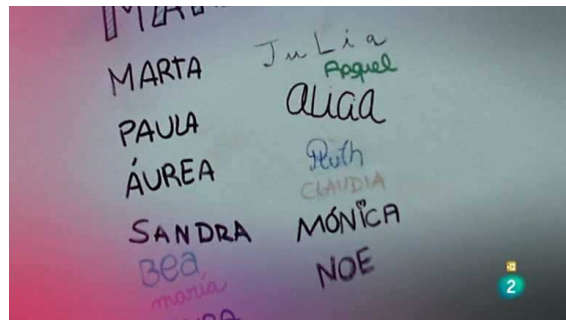 MARTA
PAULA
ÁUREA
SANDRA
Bea
maría
JuLia
Raquel
aLicia
Ruth
CLAUDIA
MÓNICA
NOE
2